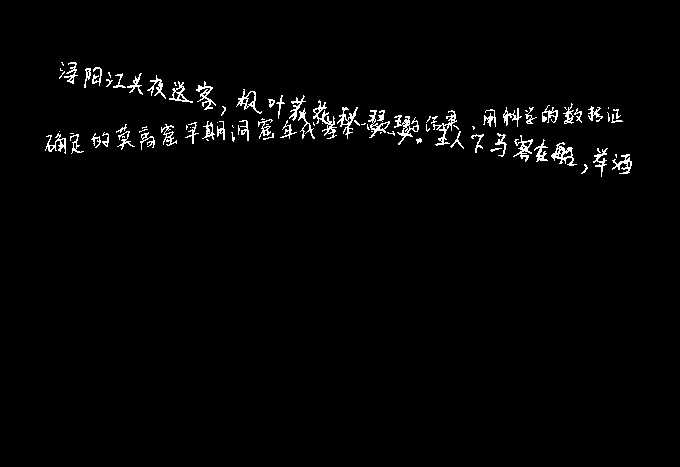 浔阳江头夜送客，枫叶荻花秋瑟瑟。主人下马客在船，举酒
确定的莫高窟早期洞窟年代基本一致的结果，用科学的数据证